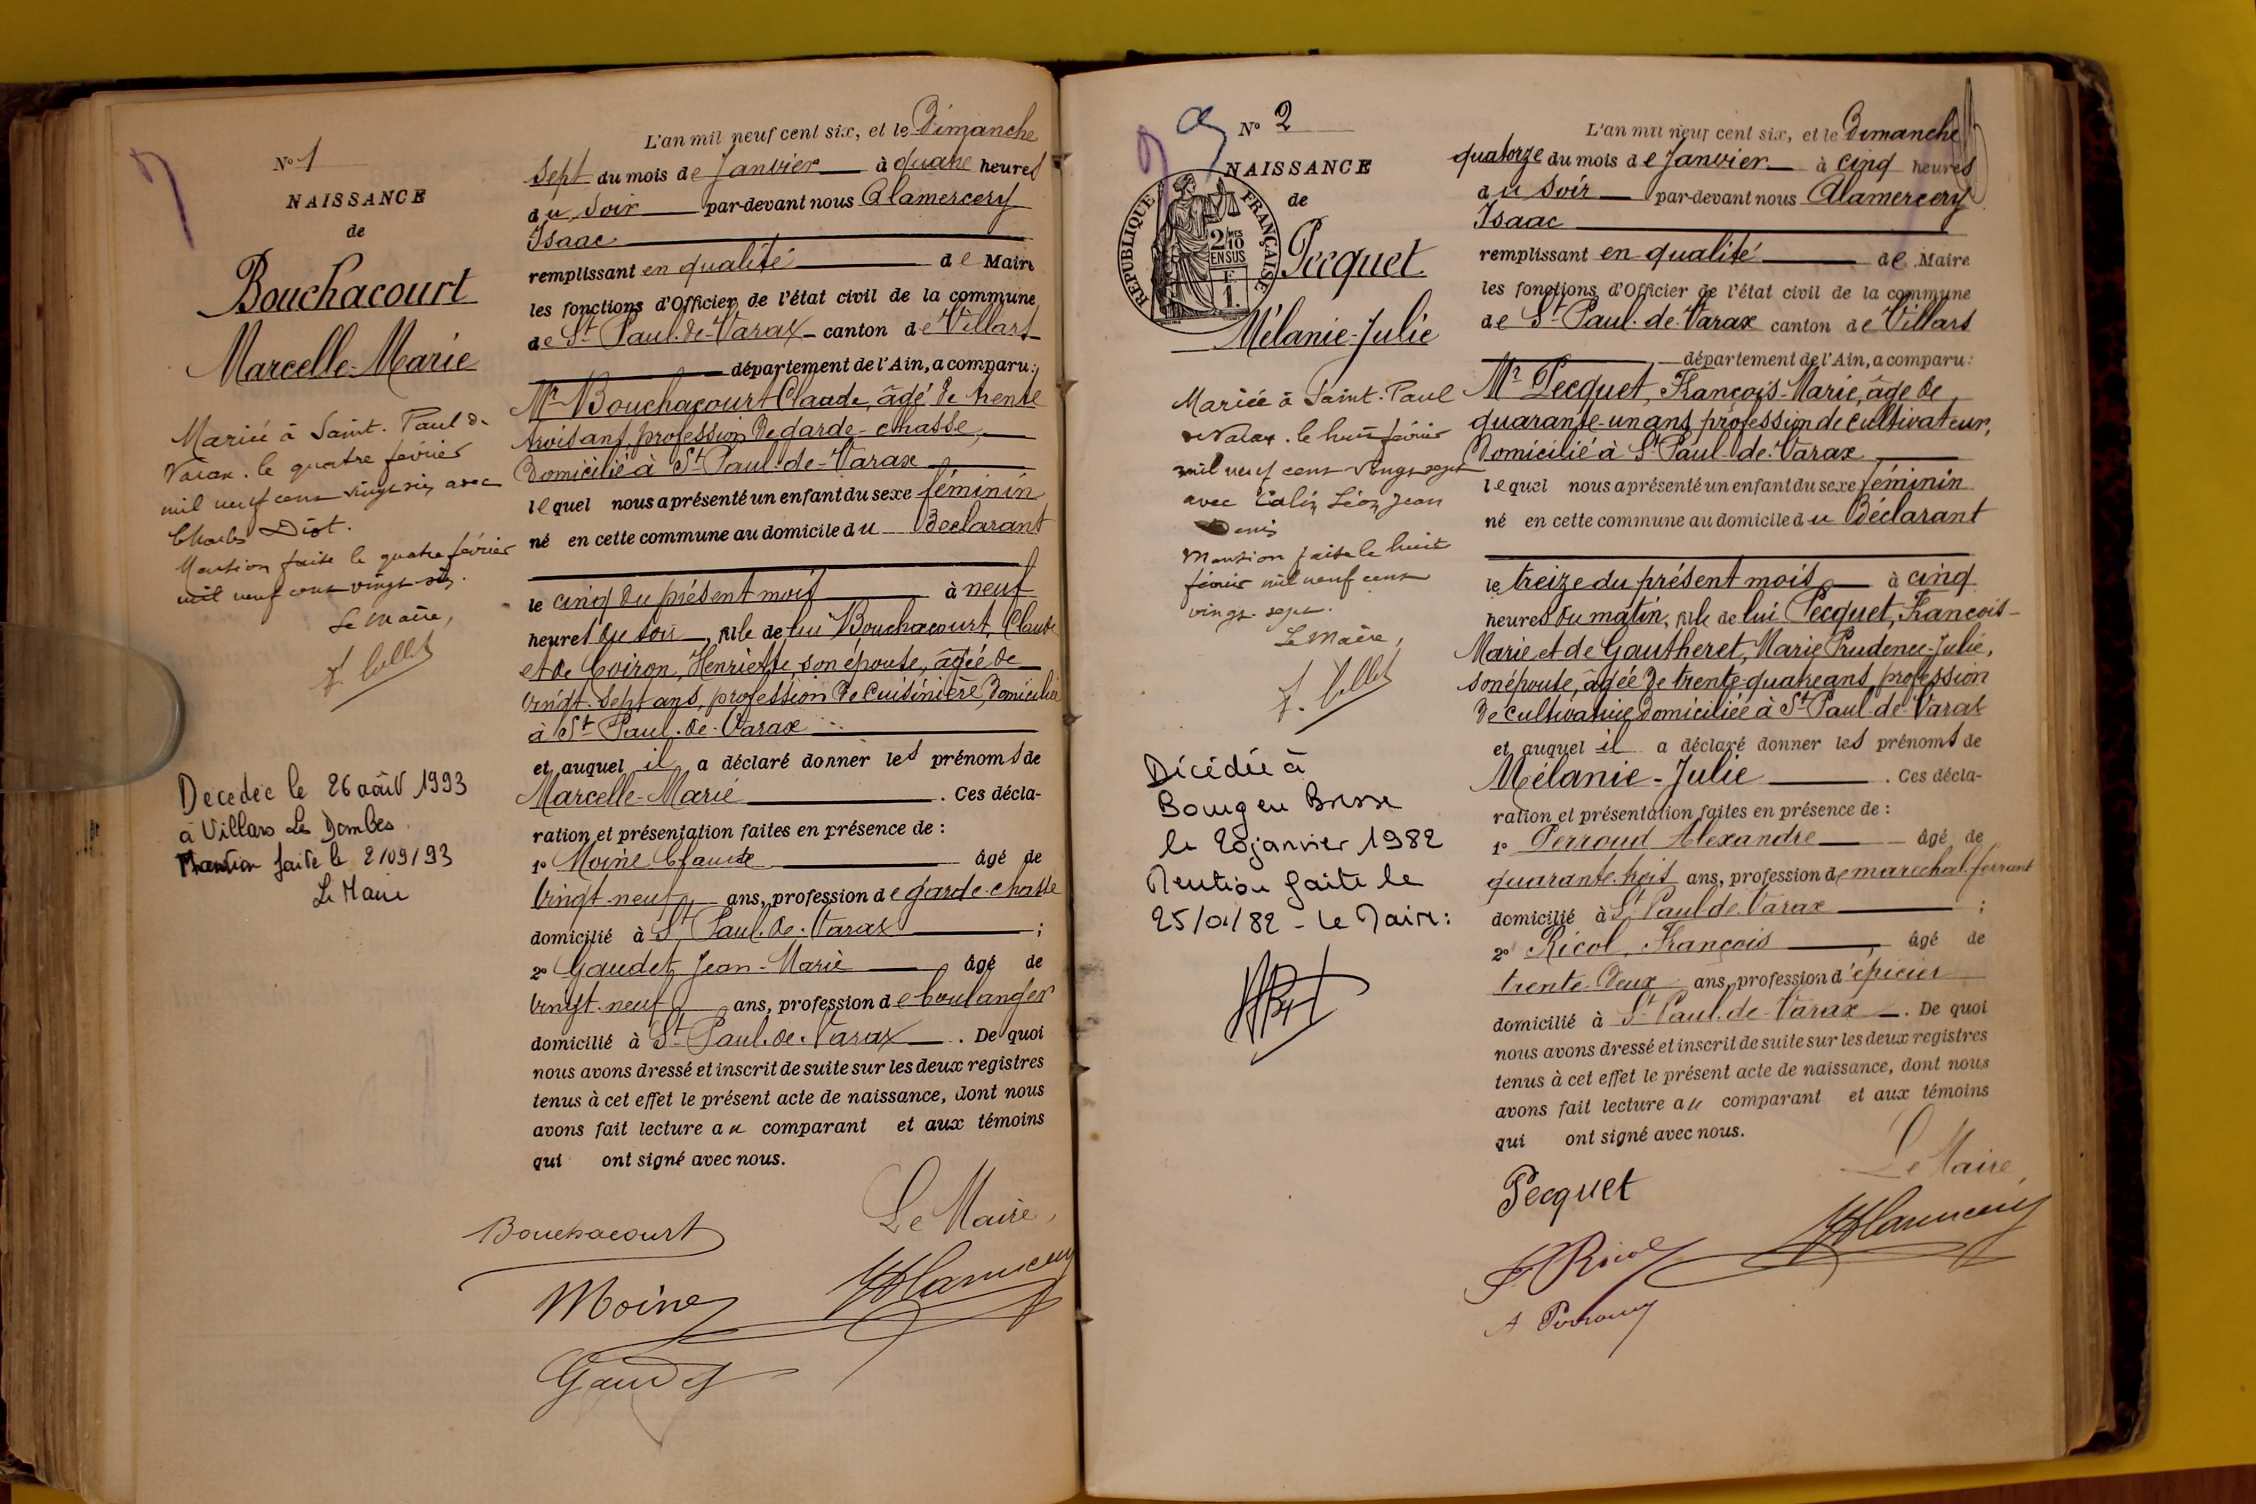 N° 1
NAISSANCE
de
Bouchacourt
Marcelle-Marie
Mariée à Saint-Paul de
Varax. le quatre février
mil neuf cent vingt six avec
Charles Diot.
Mention faite le quatre février
mil neuf cent vingt-six.
Le Maire,
Décédée le 26 août 1993
à Villars Les Dombes.
Mention faite le 2/09/93
Le Maire
L'an mil neuf cent six, et le Dimanche
sept du mois de Janvier à quatre heures
du soir par-devant nous Alamercery
Isaac
remplissant en qualité de Maire
les fonctions d'Officier de l'état civil de la commune
de St Paul-de-Varax - canton de Villars
département de l'Ain, a comparu:
Mr Bouchacourt Claude, âgé de trente
trois ans, profession de garde-chasse,
domicilié à St Paul-de-Varax
lequel nous a présenté un enfant du sexe féminin
né en cette commune au domicile du Déclarant
le cinq du présent mois à neuf
heures du soir, fille de lui Bouchacourt, Claude
et de Coiron, Henriette, son épouse, âgée de
vingt-sept ans, profession de cuisinière, domiciliée
à St Paul-de-Varax
et auquel il a déclaré donner les prénoms de
Marcelle-Marie. Ces décla-
ration et présentation faites en présence de :
1° Moine Claude âgé de
vingt-neuf ans, profession de garde-chasse
domicilié à St Paul-de-Varax ;
2° Gaudet, Jean-Marie âgé de
vingt-neuf ans, profession de boulanger
domicilié à St Paul-de-Varax. De quoi
nous avons dressé et inscrit de suite sur les deux registres
tenus à cet effet le présent acte de naissance, dont nous
avons fait lecture au comparant et aux témoins
qui ont signé avec nous.
Le Maire,
Bouchacourt
Moine
Gaudet
N° 2
NAISSANCE
de
RÉPUBLIQUE FRANÇAISE
2/10 MES
EN SUS
Pecquet
Mélanie-Julie
Mariée à Saint-Paul
de Varax. le huit février
mil neuf cent vingt sept
avec Léon Jean
Denis
Mention faite le huit
février mil neuf cent
vingt-sept.
Le Maire,
Décédée à
Bourg en Bresse
le 20 janvier 1982
Mention faite le
25/01/82 - Le Maire:
L'an mil neuf cent six, et le Dimanche
quatorze du mois de Janvier à cinq heures
du soir par-devant nous Alamercery
Isaac
remplissant en qualité de Maire
les fonctions d'Officier de l'état civil de la commune
de St Paul-de-Varax canton de Villars
département de l'Ain, a comparu:
Mr Pecquet, François-Marie, âgé de
quarante-un ans, profession de cultivateur,
domicilié à St Paul-de-Varax
lequel nous a présenté un enfant du sexe féminin
né en cette commune au domicile du Déclarant
le treize du présent mois à cinq
heures du matin, fille de lui Pecquet, François-
Marie et de Gautheret, Marie Prudence-Julie,
son épouse, âgée de trente-quatre ans, profession
de cultivatrice domiciliée à St Paul-de-Varax
et auquel il a déclaré donner les prénoms de
Mélanie-Julie. Ces décla-
ration et présentation faites en présence de :
1° Perroud Alexandre âgé de
quarante-trois ans, profession de maréchal-ferrant
domicilié à St Paul de Varax ;
2° Ricol, François, âgé de
trente-deux ans, profession d'épicier
domicilié à St Paul-de-Varax. De quoi
nous avons dressé et inscrit de suite sur les deux registres
tenus à cet effet le présent acte de naissance, dont nous
avons fait lecture au comparant et aux témoins
qui ont signé avec nous.
Le Maire
Pecquet
F. Ricol
A Perroud